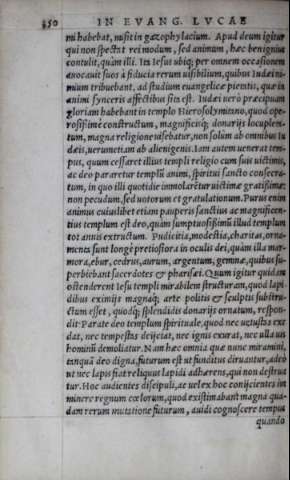 350 IN EVANG. LVCAE
mi habebat, misit in gazophylacium. Apud deum igitur
qui non spectat rei modum, sed animum, hæc benignius
contulit, quàm illi. Ita Iesus ubiq; per omnem occasionem
auocauit suos à fiducia rerum uisibilium, quibus Iudæi ni-
mium tribuebant, ad studium euangelicæ pietatis, quæ in
animi synceris affectibus sita est. Iudæi uerò præcipuam
gloriam habebant in templo Hierosolymitano, quod ope-
rosissimè constructum, magnificisq; donarijs locuplen-
tum, magna religione uisebatur, non solum ab omnibus Iu
dæis, uerumetiam ab alienigenis. Iam autem uenerat tem-
pus, quum cessaret illius templi religio cum suis uictimis,
ac deo pararetur templũ animi, spiritui sancto consecra-
tum, in quo illi quotidie immolarẽtur uictimæ gratissimæ:
non pecudum, sed uotorum et gratulationum. Purus enim
animus cuiuslibet etiam pauperis sanctius ac magnificen-
tius templum est deo, quàm sumptuosissimũ illud templum
tot annis extructum. Pudicitia, modestia, charitas, orna-
menta sunt longè pretiosiora in oculis dei, quàm illa mar-
mora, ebur, cedrus, aurum, argentum, gemmæ, quibus su-
perbiebant sacerdotes & pharisæi. Quum igitur quidam
ostenderent Iesu templi mirabilem structuram, quod lapi-
dibus eximijs magnaq; arte politis & sculptis substru-
ctum esset, quodq; splendidis donarijs ornatum, respon-
dit: Parate deo templum spirituale, quod nec uetustas exe
dat, nec tempestas deijciat, nec ignis exurat, nec ulla uis
hominũ demoliatur. Nam hæc omnia quæ nunc miramini,
tanquã deo digna, futurum est ut funditus diruantur, adeò
ut nec lapis fiat reliquus lapidi adhærens, qui non destrua
tur. Hoc audientes discipuli, ac uel ex hoc conijcientes im
minere regnum cœlorum, quod existimabant magna qua-
dam rerum mutatione futurum, auidi cognoscere tempus
quando